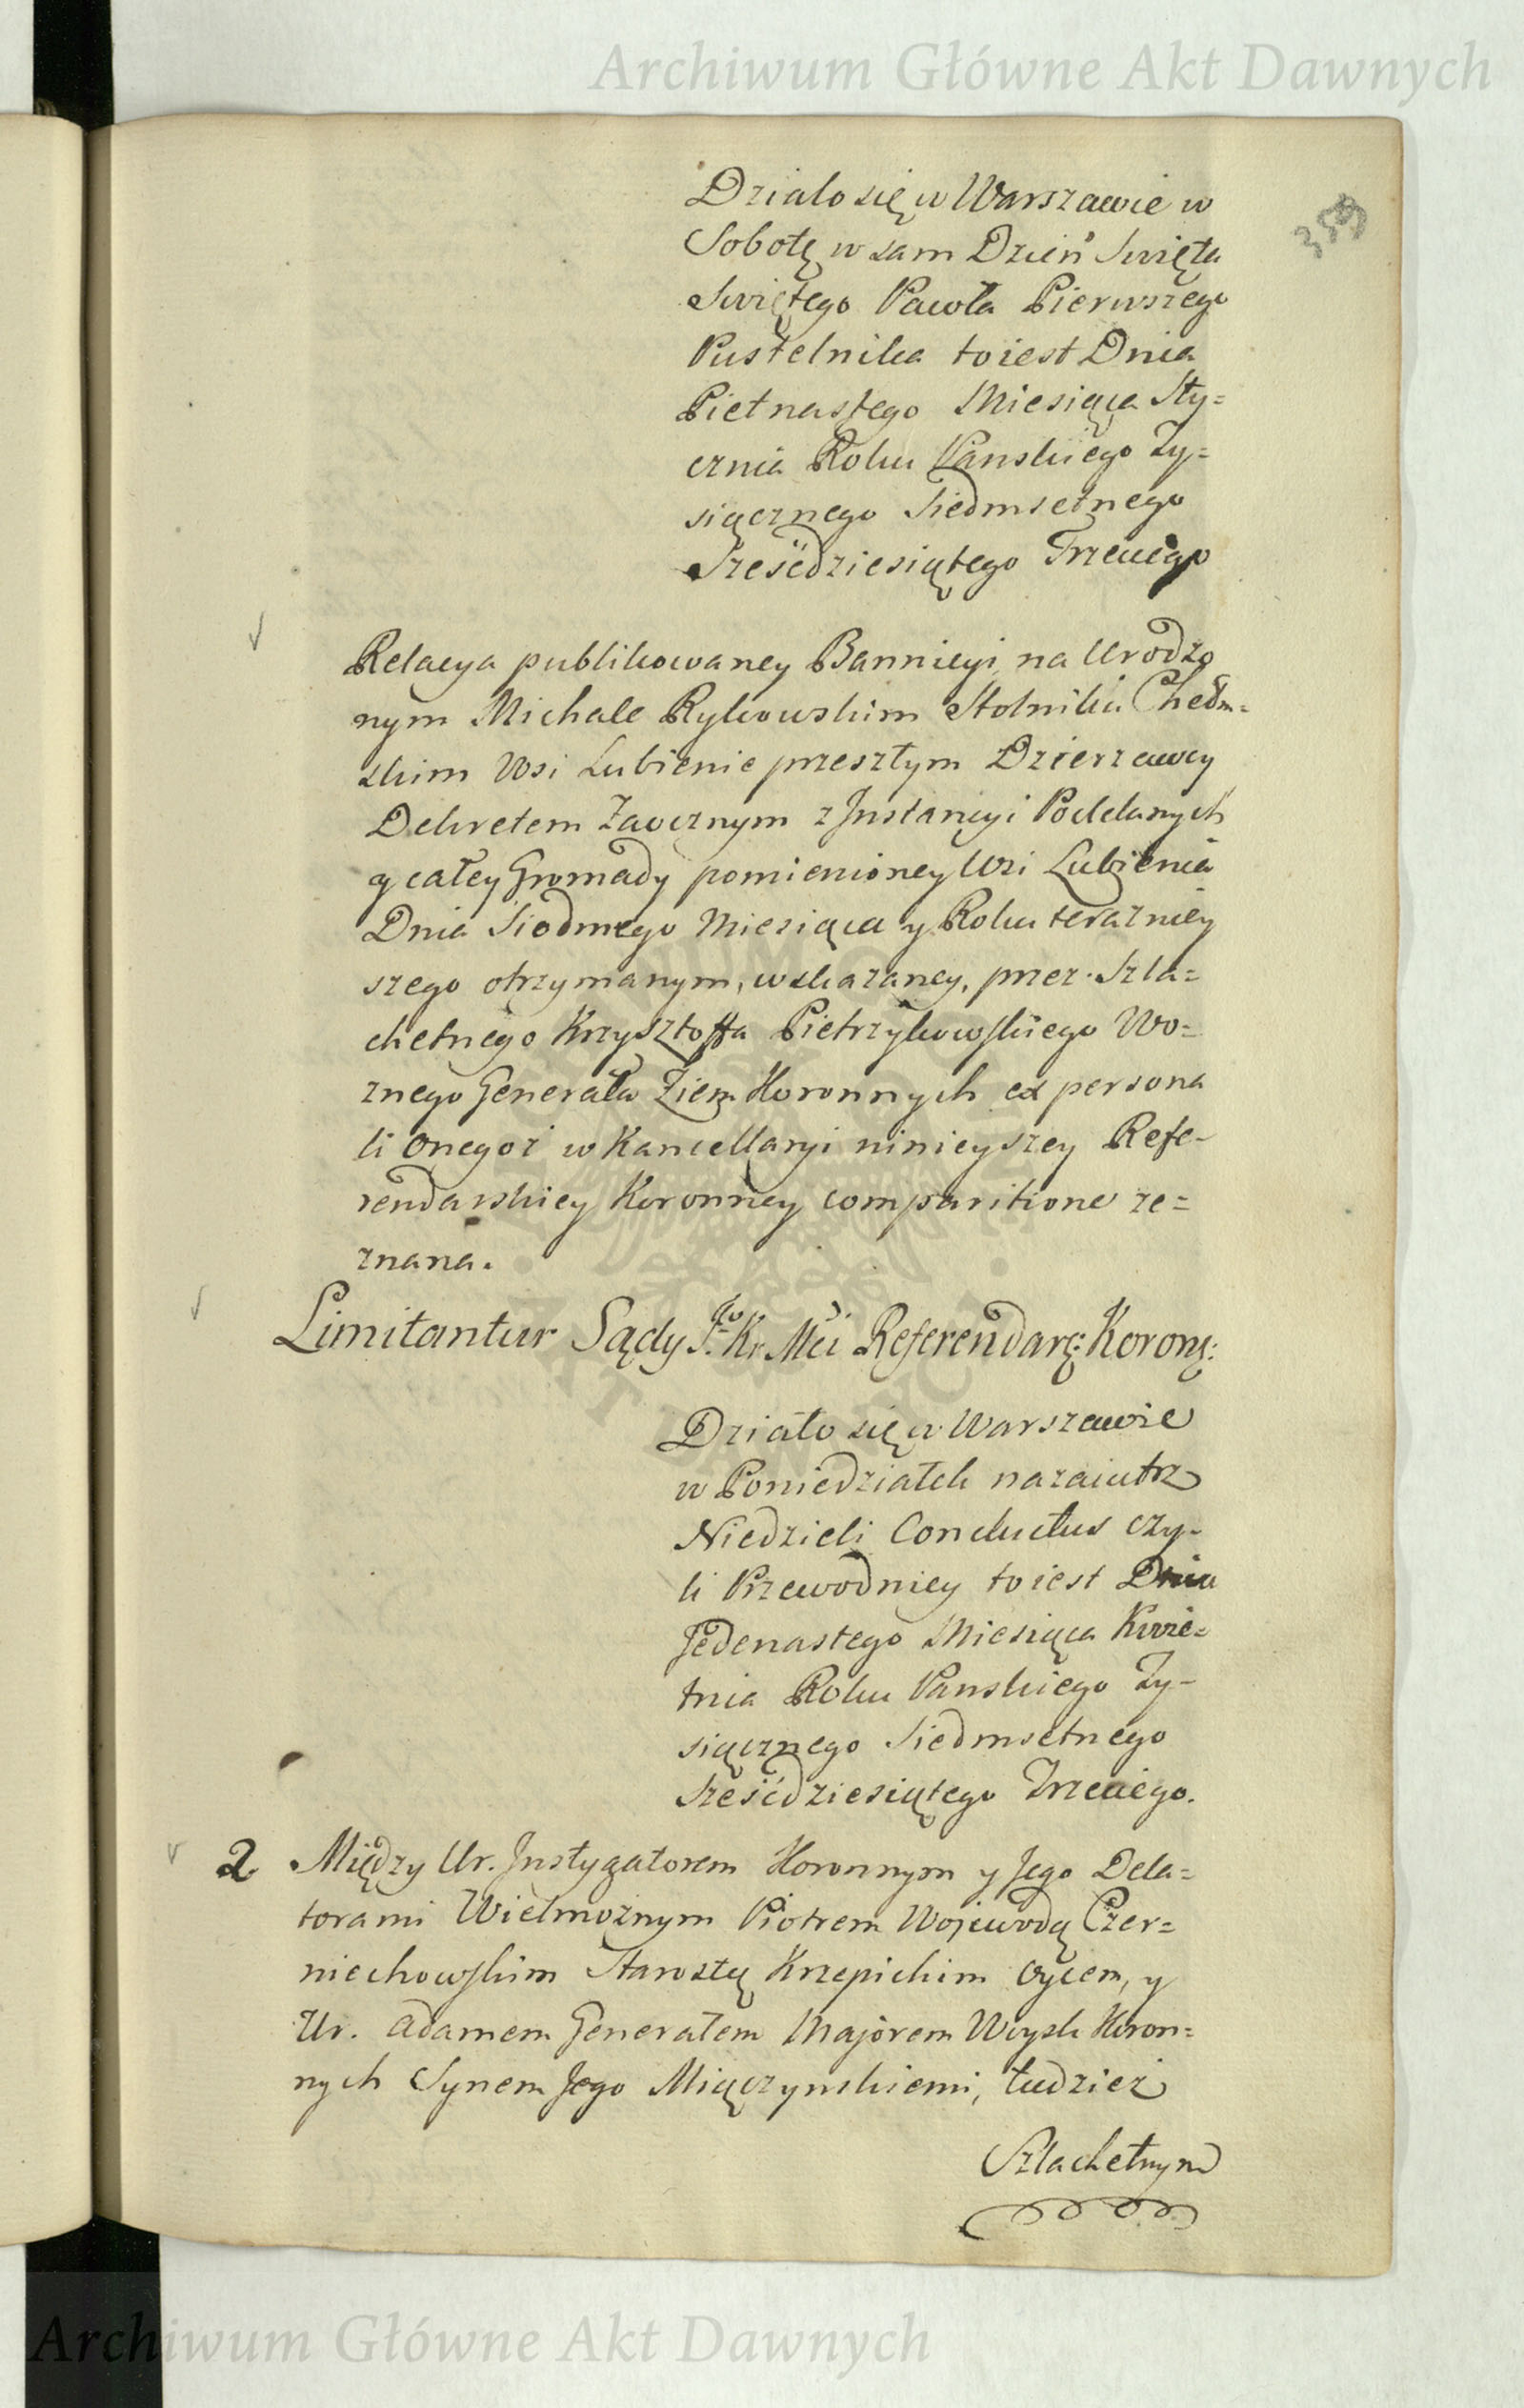 Archiwum Główne Akt Dawnych
359
Działo się w Warszawie w
Sobotę w sam Dzień Swięta
Swiętego Pawła Pierwszego
Pustelnika toiest Dnia
Pietnastego Miesiąca Sty=
cznia Roku Panskiego Ty=
siącznego Siedmsetnego
Sześćdziesiątego Trzeciego
Relacya publikowaney Bannicyi na Urodzo
nym Michale Rykowskim Stolniku Chełm=
skim Wsi Lubienie przeszłym Dzierzawcy
Dekretem Zaocznym z Instancyi Poddanych
y całey Gromady pomienioney Wsi Lubienia
Dnia Siodmego Miesiąca y Roku teraźniey
szego otrzymanym, wskazaney, przez Szla=
chetnego Krzysztoffa Pietrzykowskiego Wo=
znego Generała Ziem Koronnych ex persona
li onegoż w Kancellaryi ninieyszey Refe-
rendarskiey Koronney comparitione ze=
znana.
Limitantur Sądy J.go Kr. Mci Referendarę: Koronę:
Działo się w Warszawie
w Poniedziałek nazaiutrz
Niedzieli Conductus czy-
li Przewodniey toiest Dnia
Jedenastego Miesiąca Kwie=
tnia Roku Panskiego Ty-
siącznego Siedmsetnego
Sześćdziesiątego Trzeciego.
2 Między Ur. Instygatorem Koronnym y Jego Dela=
torami Wielmożnym Piotrem Wojewodą Czer=
niechowskim Starostą Krzepickim Oycem, y
Ur. Adamem Generałem Majorem Woysk Koron=
nych Synem Jego Miączynskiemi, tudzież
Szlachetnym
Archiwum Główne Akt Dawnych